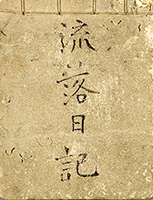 流落日記